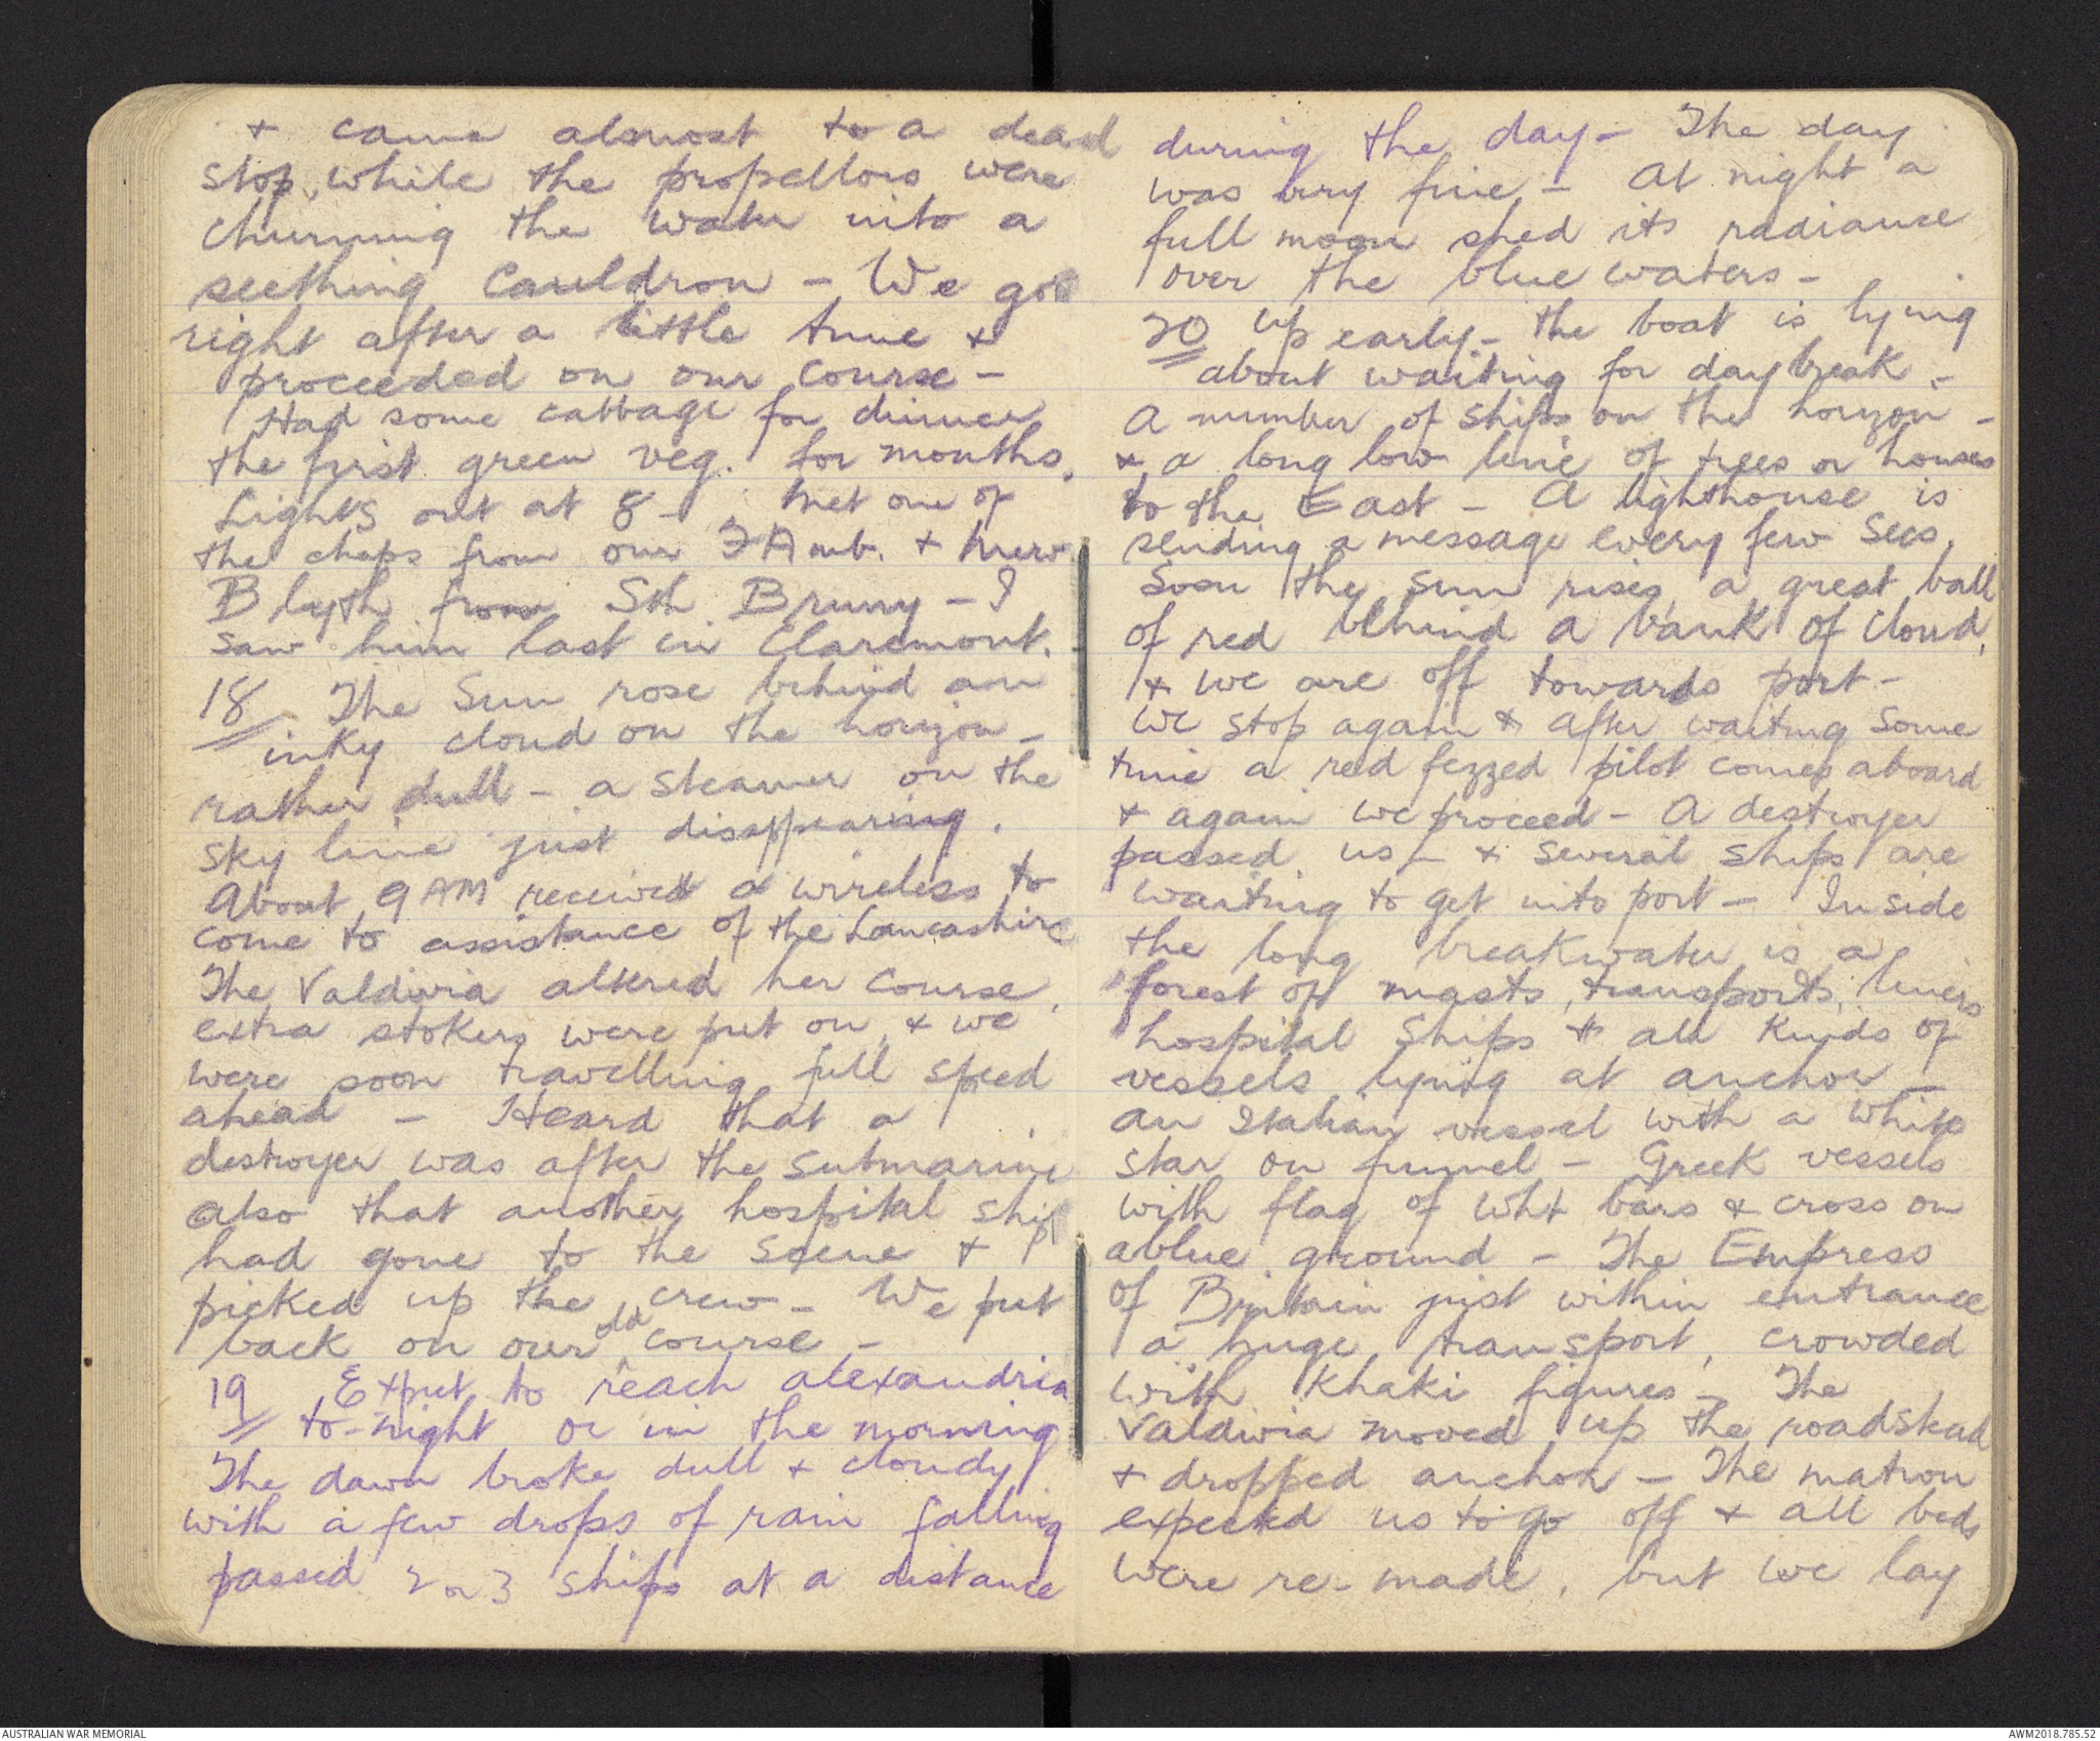 + came almost to a dead
stop, while the propellors were
churning the water into a
seething cauldron - We got
right after a little time &
proceeded on our course -
Had some cabbage for dinner
the first green veg. for months.
Lights out at 8 - Met one of
the chaps from our F Amb. + Merv
Blyth from Sth Bruny - I
saw him last in Claremont.
18 The Sun rose behind an
inky cloud on the horizon -
rather dull - a steamer on the
sky line just disappearing.
About 9 AM received a wireless to
come to assistance of the Lancashire
The Valdivia altered her course,
extra stokers were put on, & we
were soon travelling full speed
ahead - Heard that a
destroyer was after the submarine
also that another hospital ship
had gone to the scene +
picked up the crew - We put
back on our old course -
19 Expect to reach alexandria
to-night or in the morning
The dawn broke dull + cloudy
with a few drops of rain falling
passed 2 or 3 ships at a distance
during the day - The day
was very fine - At night a
full moon shed its radiance
over the blue waters -
20 Up early - the boat is lying
about waiting for daybreak -
A number of ships on the horizon -
& a long low line of trees or houses
to the East - A lighthouse is
sending a message every few secs,
Soon the sun rises, a great ball
of red behind a bank of cloud,
& we are off towards port -
We stop again & after waiting some
time a red fezzed pilot comes aboard
& again we proceed - A destroyer
passed us - & several ships are
waiting to get into port - Inside
the long breakwater is a
forest of masts, transports, liners
hospital ships & all kinds of
vessels lying at anchor -
an Italian vessel with a white
star on funnel - Greek vessels
with flag of wht bars & cross on
a blue ground - The Empress
of Britain just within entrance
a huge transport, crowded
with Khaki figures - The
Valdivia moved up the roadstead
+ dropped anchor - The matron
expected us to go off + all beds
were re-made, but we lay
AUSTRALIAN WAR MEMORIAL
AWM2018.785.52